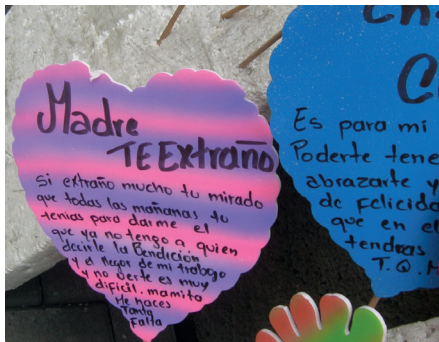 Madre
TE Extraño
Si extraño mucho tu mirado
que todas las mañanas tu
tenias para darme el
que ya no tengo a quien
decirle la Bendición
y el llegar de mi trabajo
y no verte es muy
dificil. mamita
Me haces
Tanta
Falta
Es para mi
Poderte tene
abrazarte y
de Felicida
que en el
tendras
T.Q.M